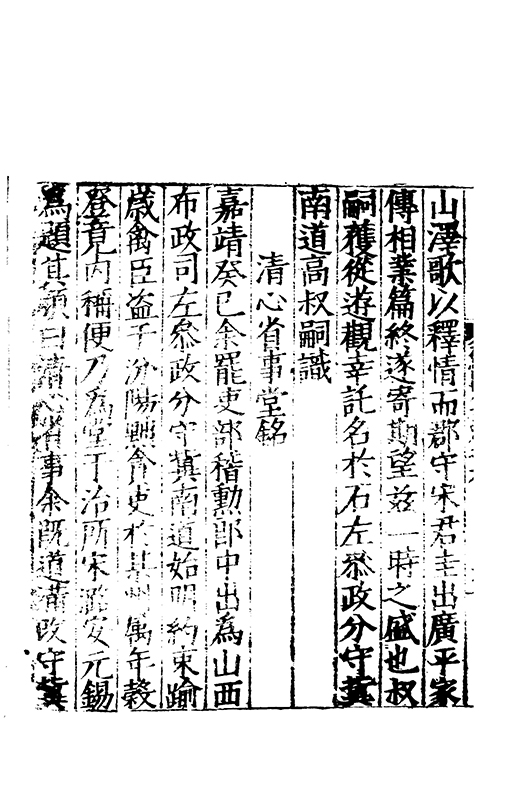 山澤歌以釋情而郡守宋君圭出廣平家
傳相業篇終遂寄期望兹一時之盛也叔
嗣獲從遊觀幸託名於石左叅政分守冀
南道高叔嗣識
清心省事堂銘
嘉靖癸巳余罷吏部稽勳郎中出為山西
布政司左叅政分守冀南道始明約束踰
歲禽巨盗于汾陽興貪吏於某州屬年穀
登竟內稱便乃為堂于治所宋潞安元錫
為題其額曰清心省事余旣道滿改守冀